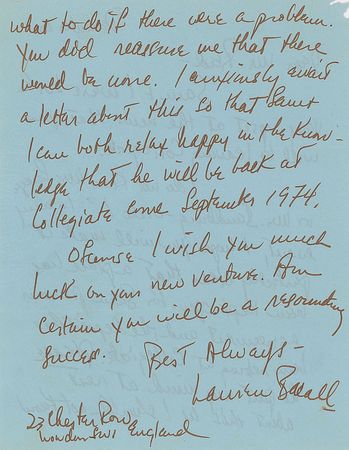 what to do if there were a problem.
You did reassure me that there
would be none. I anxiously await
a letter about this so that Sam &
I can both relax happy in the know-
ledge that he will be back at
Collegiate come September 1974.
Ofcourse I wish you much
luck on your new venture. Am
certain you will be a resounding
success.
Best Always -
Lauren Bacall
23 Chester Row,
London SW1 England